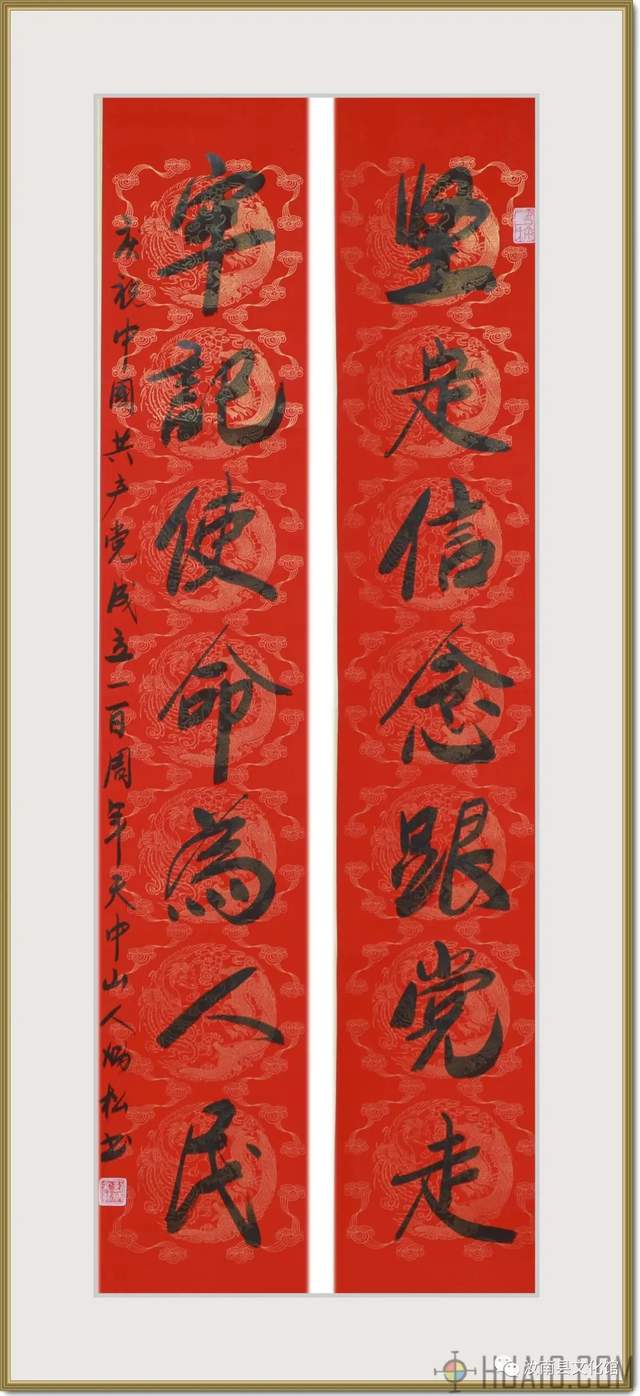 堅定信念跟党走
牢記使命為人民
庆祝中國共产党成立一百周年天中山人炳松书
汝南县文化馆